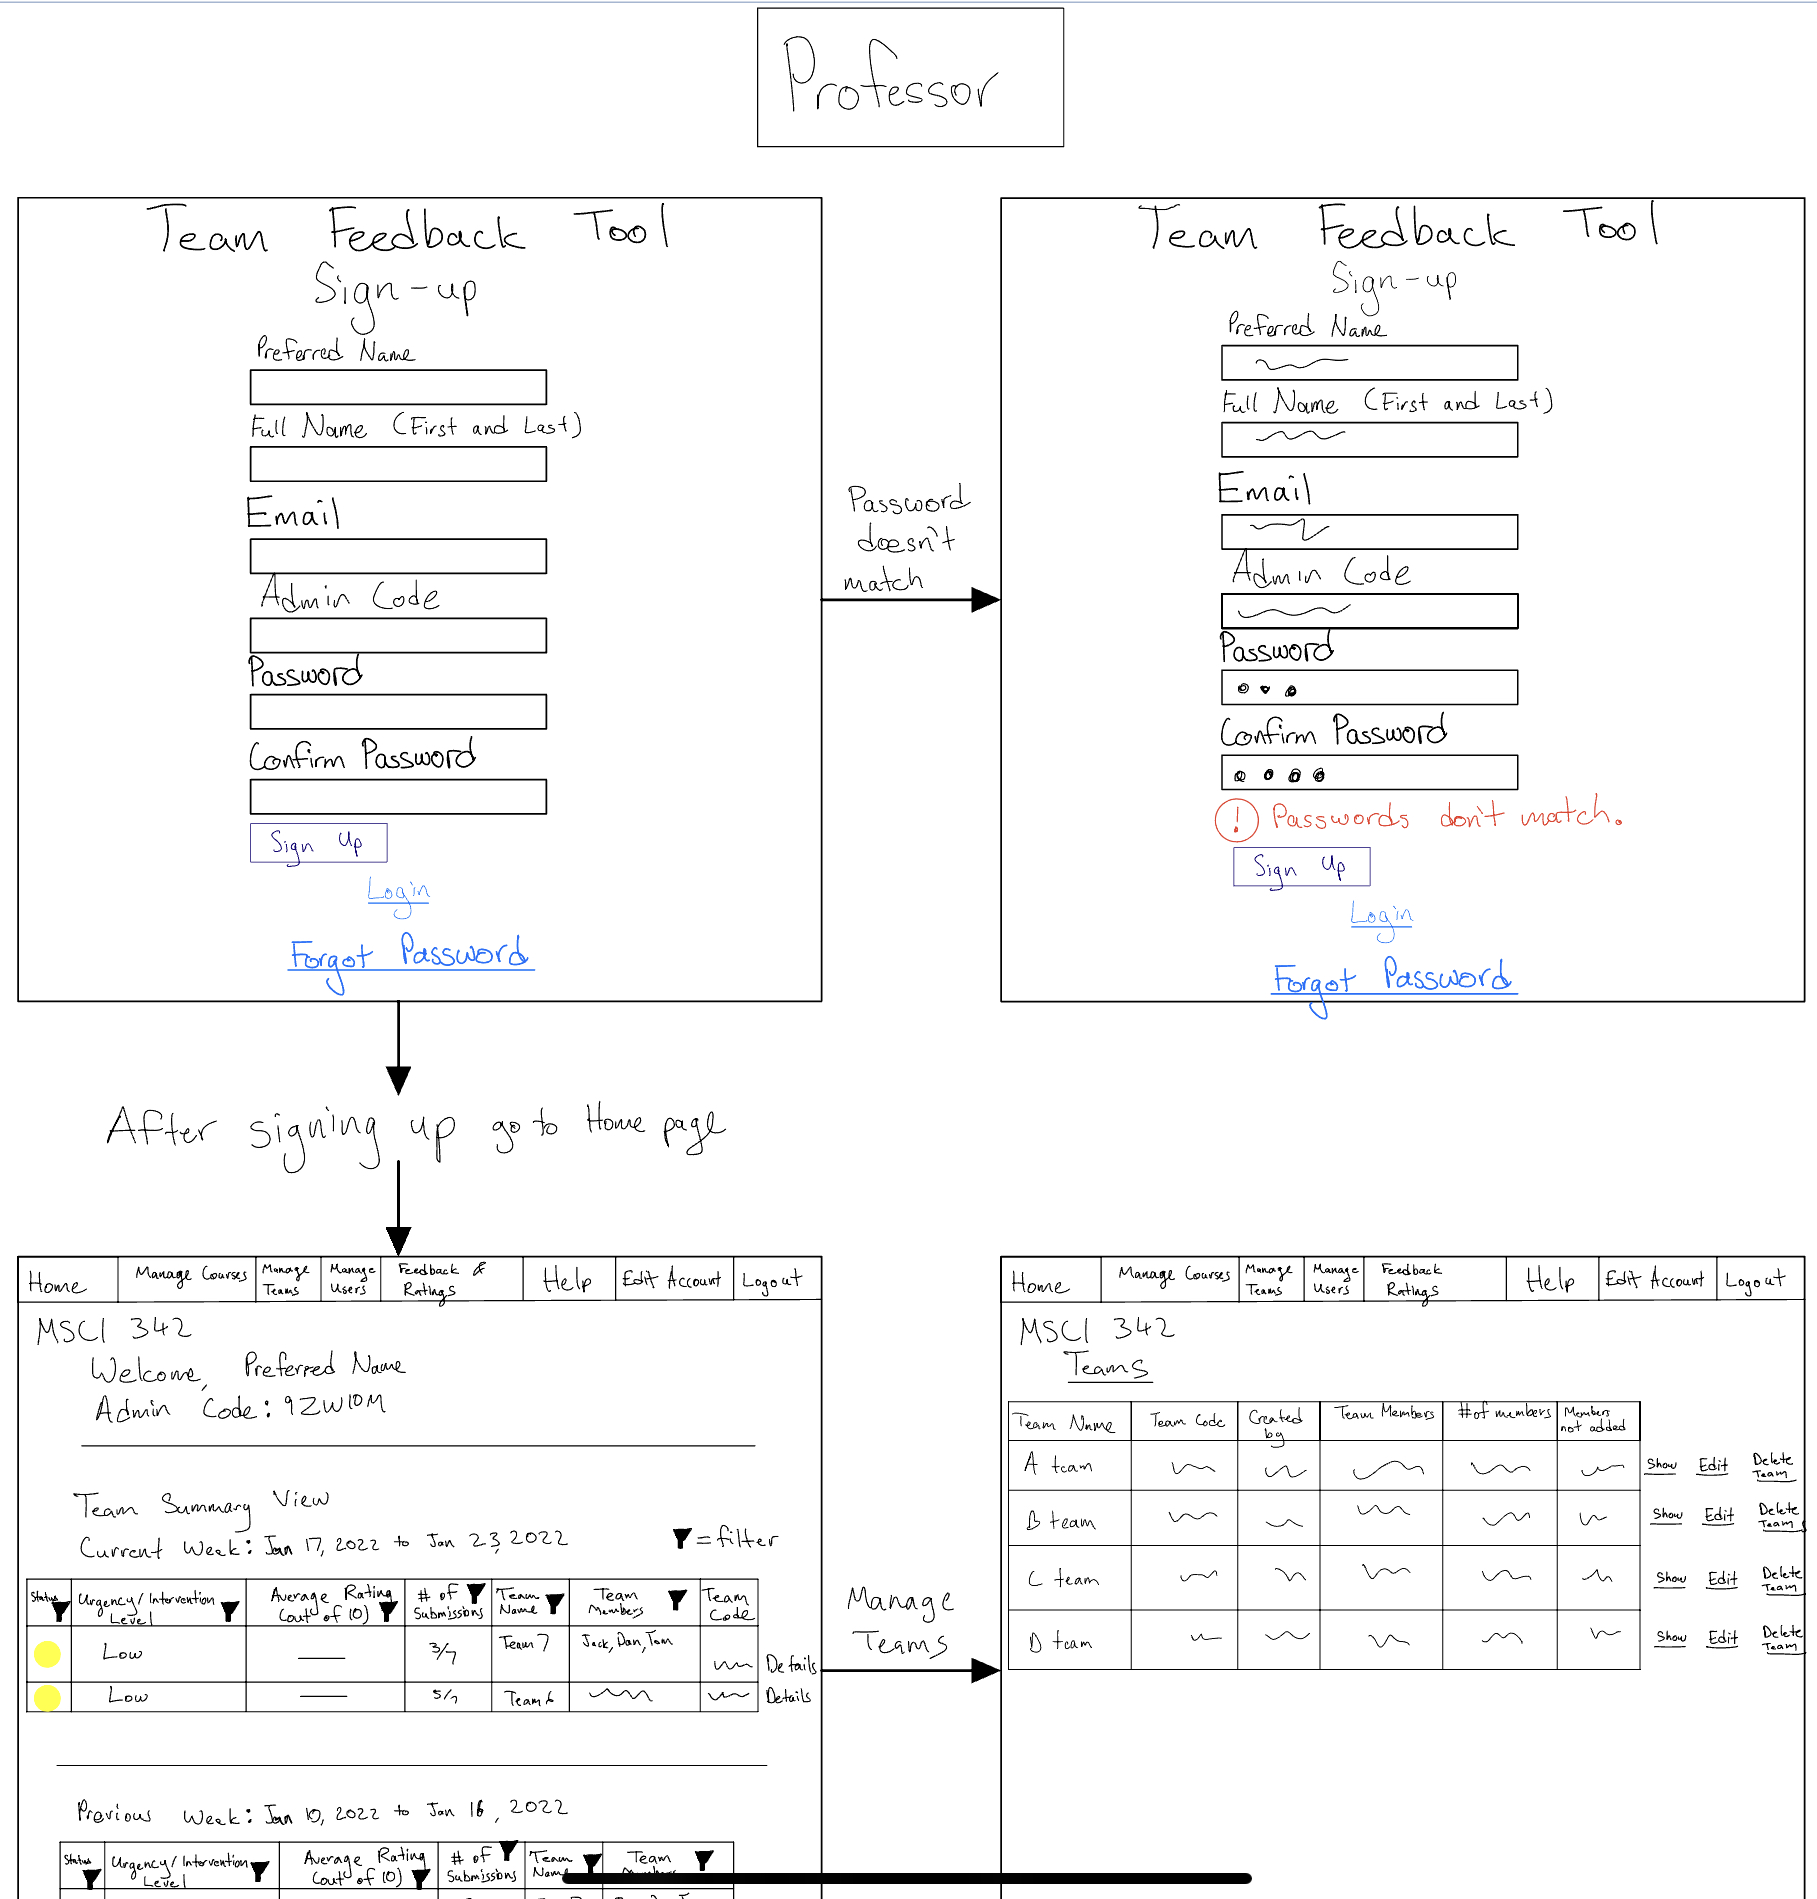 Professor
Team Feedback Tool
Sign-up
Preferred Name
Full Name (First and Last)
Email
Admin Code
Password
Confirm Password
Sign Up
Login
Forgot Password
Password
doesn't
match
Team Feedback Tool
Sign-up
Preferred Name
Full Name (First and Last)
Email
Admin Code
Password
Confirm Password
! Passwords don't match.
Sign Up
Login
Forgot Password
After signing up go to Home page
Home Manage Courses Manage Teams Manage Users Feedback & Ratings Help Edit Account Logout
MSCI 342
Welcome, Preferred Name
Admin Code: 9ZW10M
Team Summary View
Current Week: Jan 17, 2022 to Jan 23, 2022 = filter
Status Urgency/Intervention Level Average Rating (out of 10) # of Submissions Team Name Team Members Team Code
Low 3/7 Team 7 Jack, Dan, Tom Details
Low 5/7 Team 6 Details
Previous Week: Jan 10, 2022 to Jan 16, 2022
Status Urgency/Intervention Level Average Rating (out of 10) # of Submissions Team Name Team
Manage
Teams
Home Manage Courses Manage Teams Manage Users Feedback Ratings Help Edit Account Logout
MSCI 342
Teams
Team Name Team Code Created by Team Members # of members Members not added
A team Show Edit Delete Team
B team Show Edit Delete Teams
C team Show Edit Delete Team
D team Show Edit Delete Team